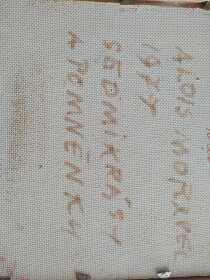 ALOIS MORAVEC
1977
SEDMIKRÁSKY
A POMNĚNKY